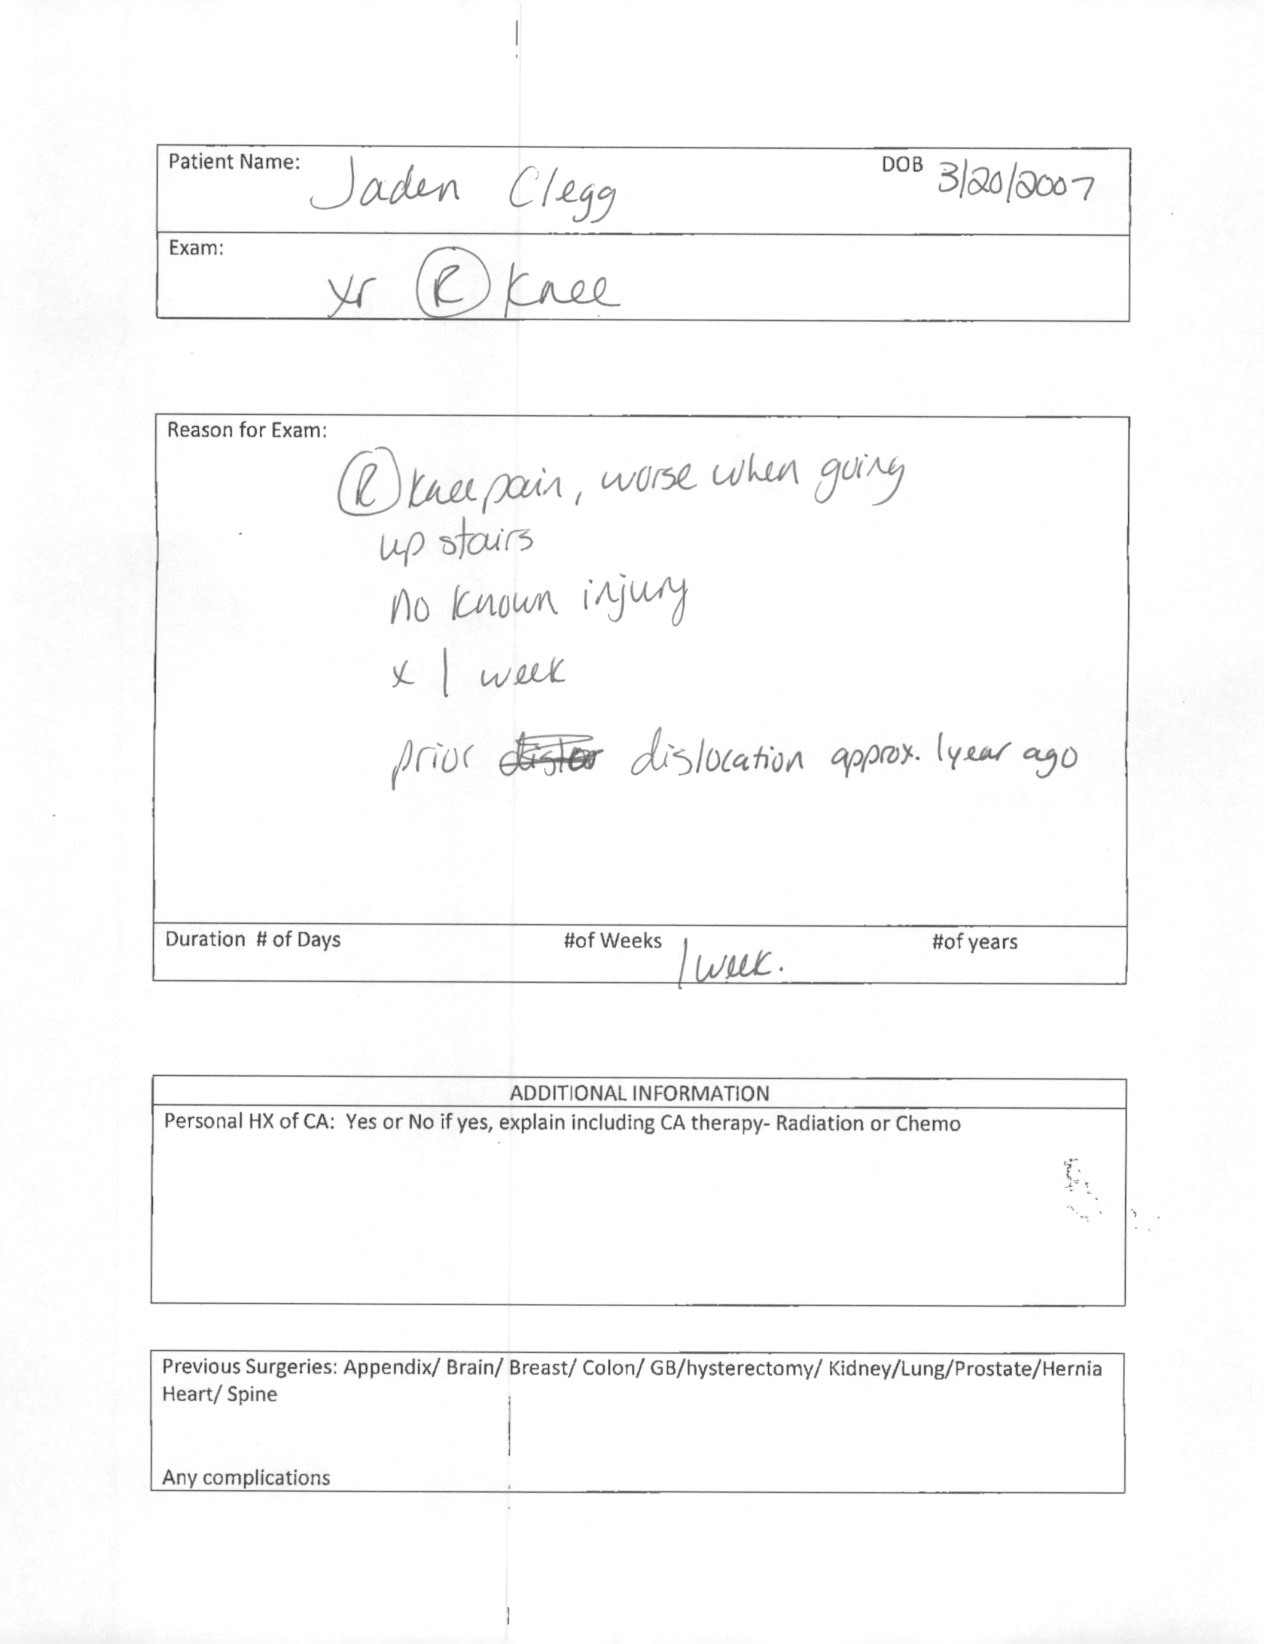 Patient Name: Jaden Clegg DOB 3/20/2007
Exam: xr R knee
Reason for Exam:
R knee pain, worse when going
up stairs
no known injury
x 1 week
prior dislocation approx. 1 year ago
Duration # of Days #of Weeks 1 week. #of years
ADDITIONAL INFORMATION
Personal HX of CA: Yes or No if yes, explain including CA therapy- Radiation or Chemo
Previous Surgeries: Appendix/ Brain/ Breast/ Colon/ GB/hysterectomy/ Kidney/Lung/Prostate/Hernia
Heart/ Spine
Any complications